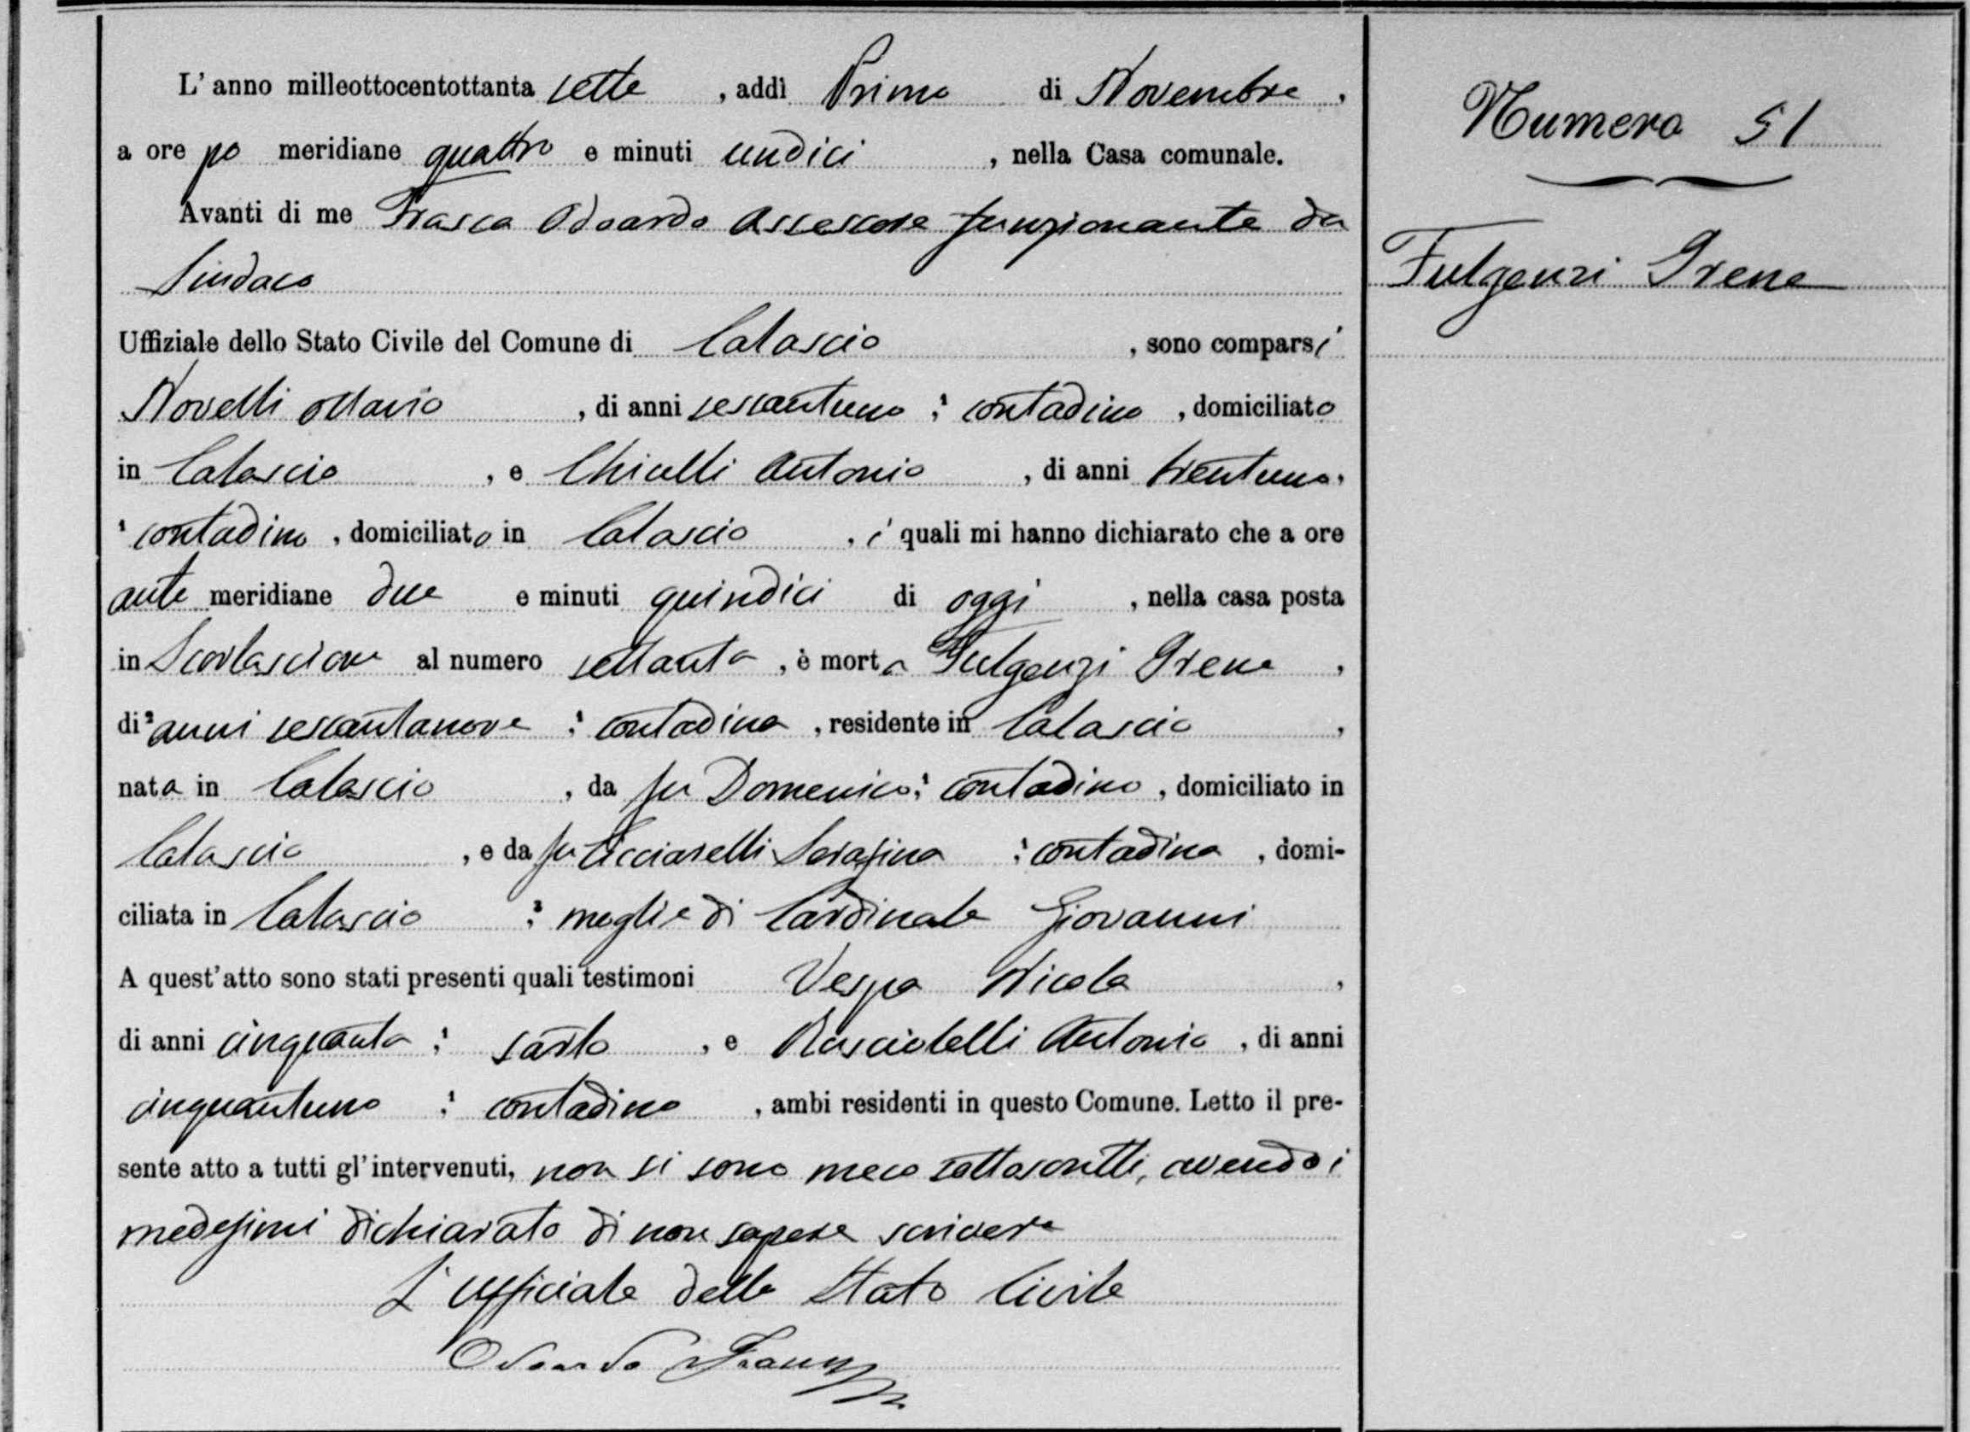 L'anno milleottocentottanta sette, addì Primo di Novembre,
a ore po meridiane quattro e minuti undici, nella Casa comunale.
Avanti di me Frasca Odoardo Assessore funzionante da
Sindaco
Uffiziale dello Stato Civile del Comune di Calascio, sono comparsi
Novelli Ottavio, di anni sessantuno; contadino, domiciliato
in Calascio, e Chiulli Antonio, di anni trentuno,
contadino, domiciliato in Calascio, i quali mi hanno dichiarato che a ore
ante meridiane due e minuti quindici di oggi, nella casa posta
in al numero settanta, è morta Fulgenzi Irene,
di anni sessantanove; contadina, residente in Calascio,
nata in Calascio, da fu Domenico; contadino, domiciliato in
Calascio, e da fu Ucciarelli Serafina; contadina, domi-
ciliata in Calascio; moglie di Cardinale Giovanni
A quest'atto sono stati presenti quali testimoni Vespa Nicola,
di anni cinquanta; sarto, e Rusciolelli Antonio, di anni
cinquantuno; contadino, ambi residenti in questo Comune. Letto il pre-
sente atto a tutti gl'intervenuti, non si sono meco sottoscritti, avendo i
medesimi dichiarato di non sapere scrivere
L'Ufficiale dello Stato Civile
Odoardo Frasca
Numero 51
Fulgenzi Irene